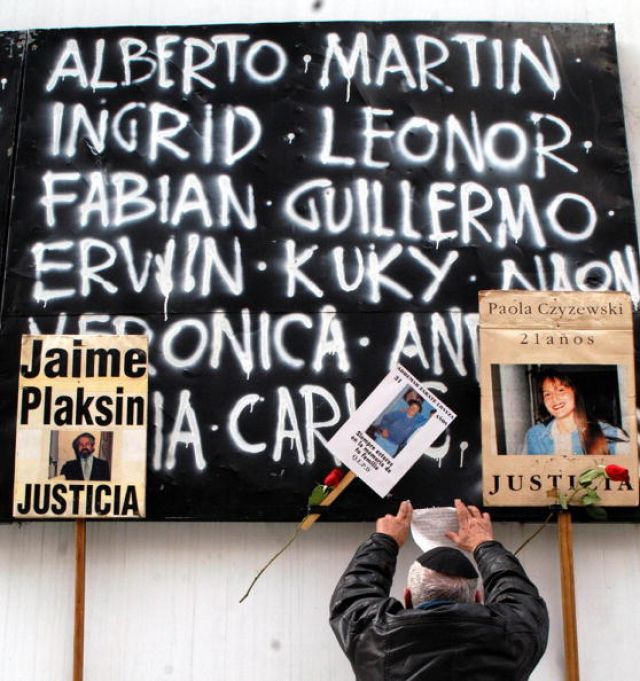 ALBERTO · MARTIN
INGRID · LEONOR ·
FABIAN · GUILLERMO ·
ERWIN · KUKY · NAON
VERONICA · AN
IA · CARL S
Jaime
Plaksin
JUSTICIA
21 años
Siempre estarás
en la memoria de
tu familia
Q.E.P.D
Paola Czyzewski
21 años
JUSTICIA